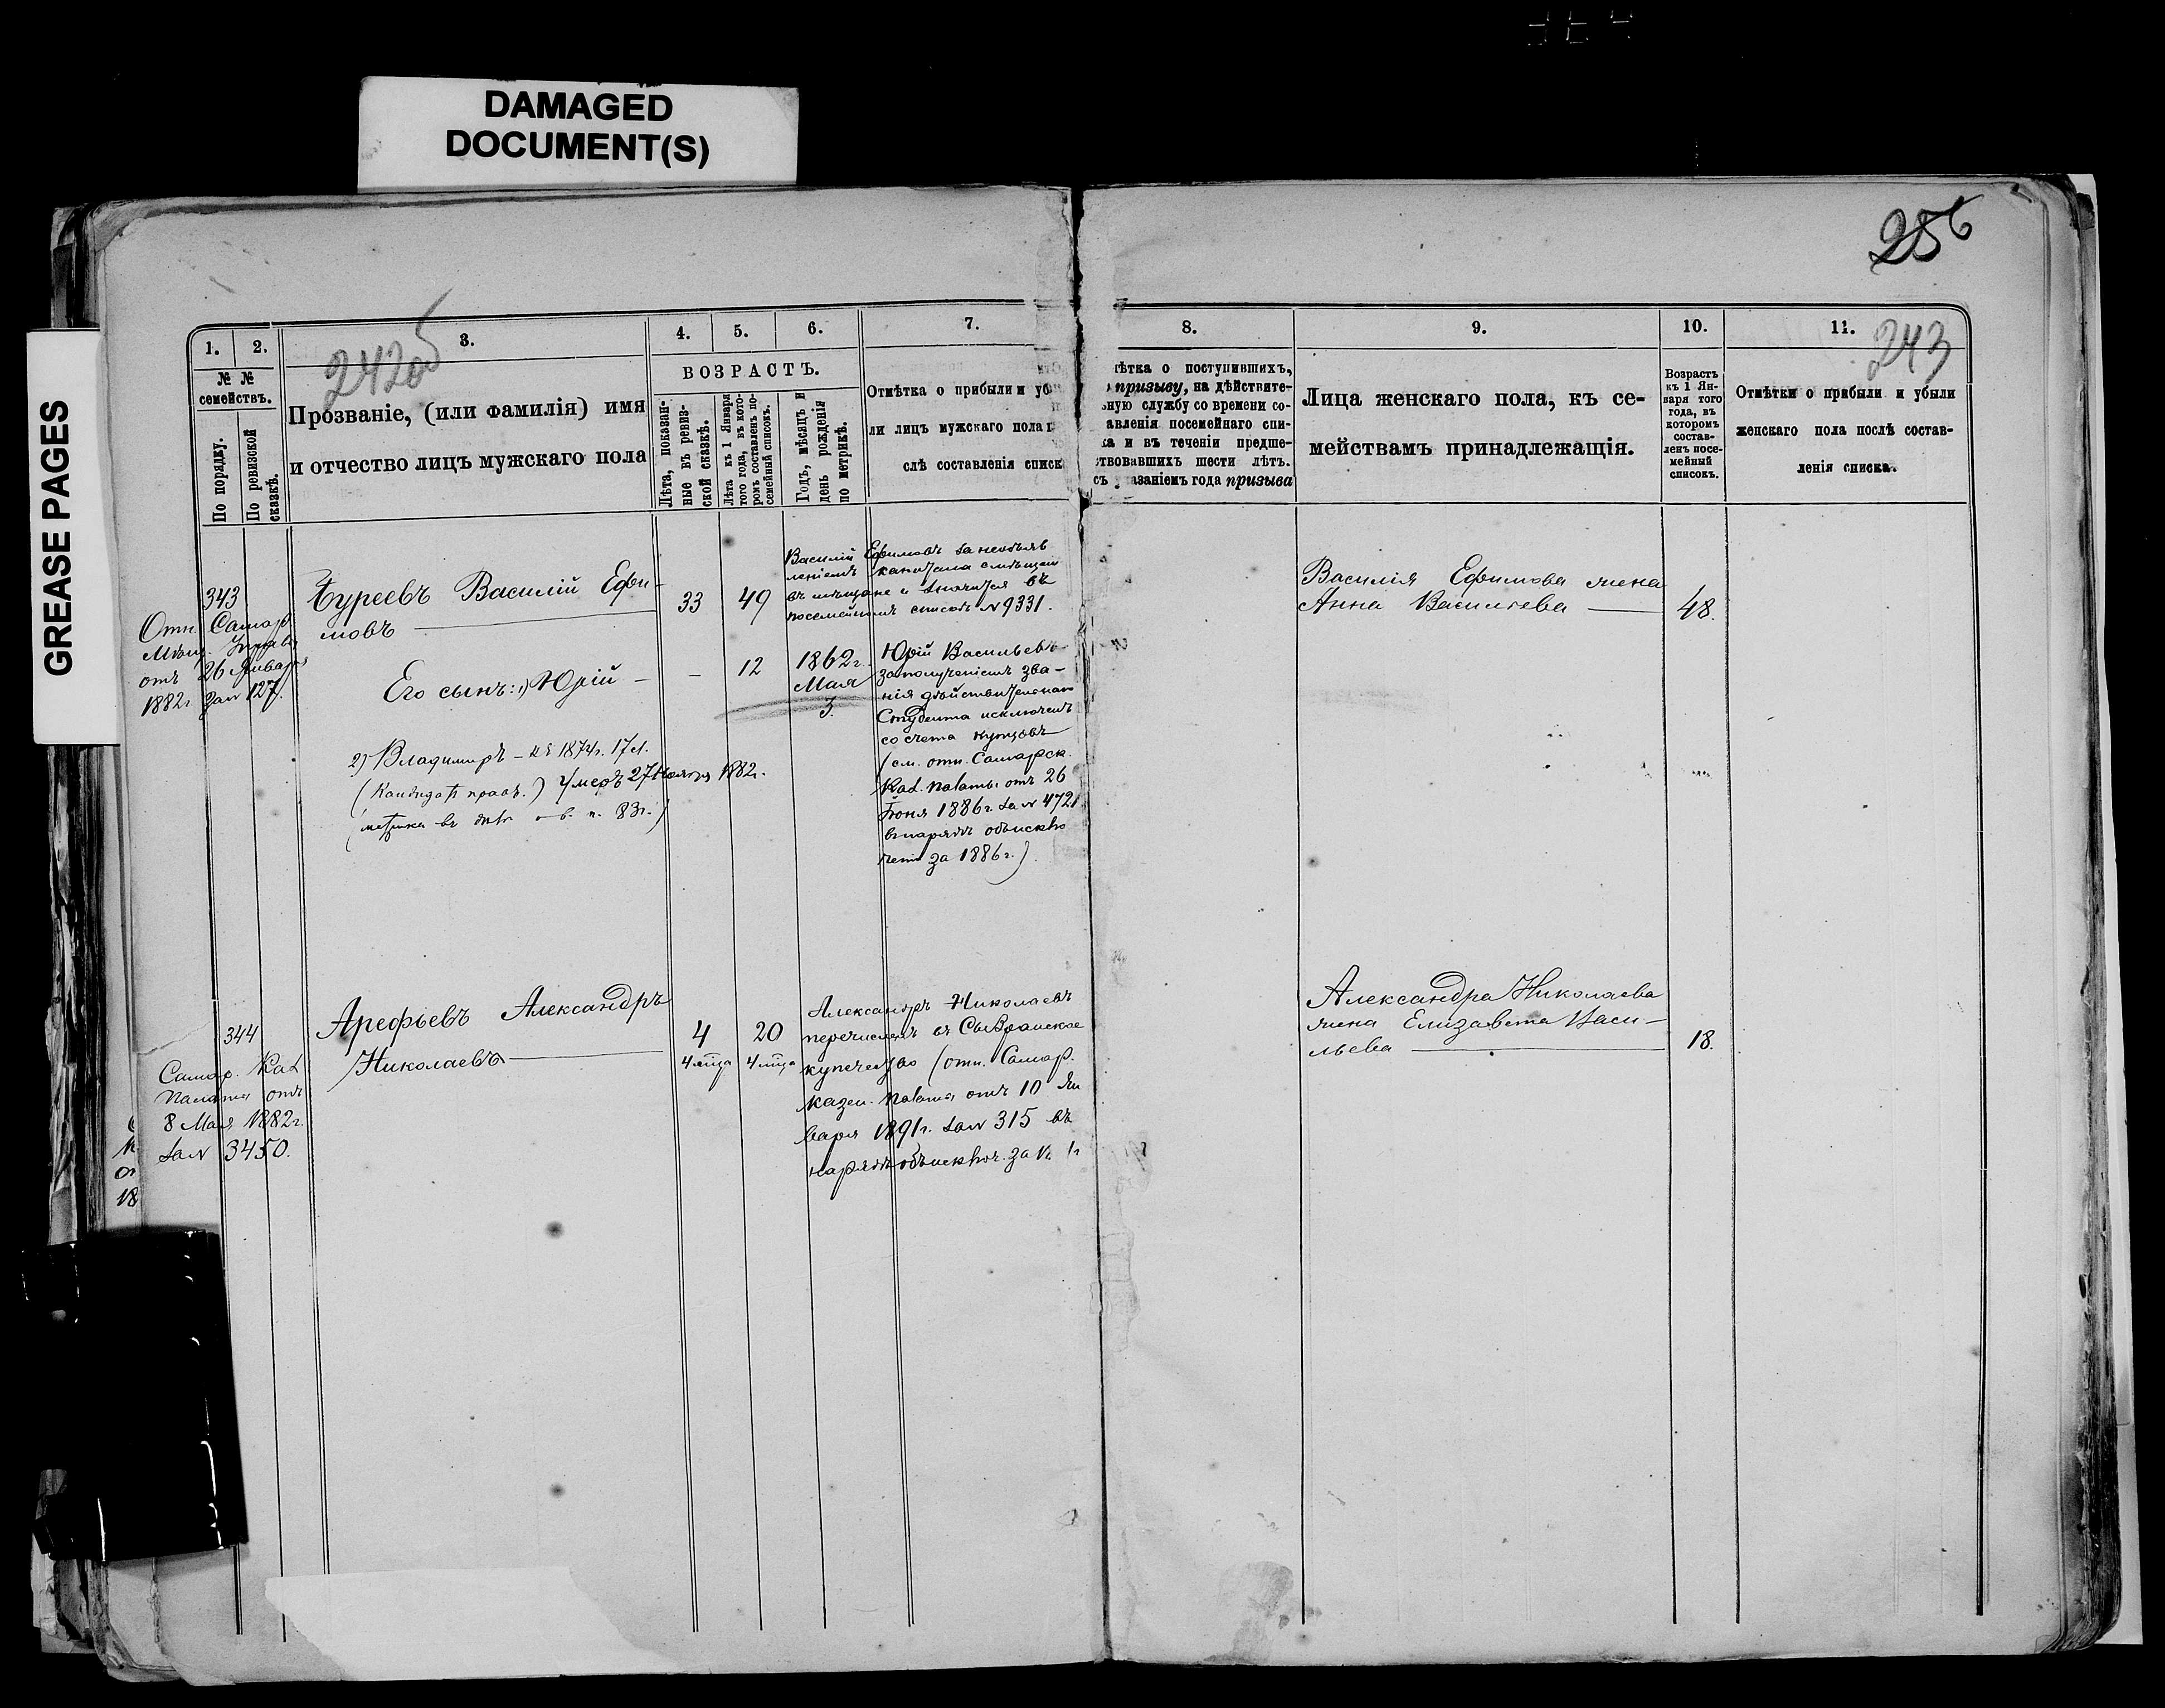 DAMAGED
DOCUMENT(S)
GREASE PAGES
256
242 об
243
1.
2.
3.
4.
5.
6.
7.
8.
9.
10.
11.
№ №
семействъ.
По порядку.
По ревизской
сказкѣ.
Прозваніе, (или фамилія) имя
и отчество лицъ мужскаго пола
ВОЗРАСТЪ.
Лѣта, показан-
ные въ ревиз-
ской сказкѣ.
Лѣта къ 1 Января
того года, въ кото-
ромъ составленъ по-
семейный списокъ.
Годъ, мѣсяцъ и
день рожденія
по метрикѣ.
Отмѣтка о прибыли и уб
ли лицъ мужскаго пола п
слѣ составленія списк
ѣтка о поступившихъ,
призыву, на дѣйствите-
ьную службу со времени со-
авленія посемейнаго спи-
ка и въ теченіи предше-
ствовавшихъ шести лѣтъ.
съ указаніемъ года призыва
Лица женскаго пола, къ се-
мействамъ принадлежащія.
Возрастъ
къ 1 Ян-
варя того
года, въ
которомъ
состав-
ленъ посе-
мейный
списокъ.
Отмѣтки о прибыли и убыли
женскаго пола послѣ состав-
ленія списка.
343
Отн. Самар
Мѣщ. Управы
отъ 26 Января
1882г. за № 127.
Буреевъ Василій Ефи-
мовъ
33
49
Василій Ефимовъ за необъяв
леніемъ капитала смѣщенъ
въ мѣщане и значится въ
посемейномъ спискѣ № 9331.
Василія Ефимова жена
Анна Васильева
48.
Его сынъ: 1) Юрій –
–
12
1862г.
Мая
3.
Юрій Васильевъ
за полученіемъ зва-
нія дѣйствительнаго
Студента исключенъ
со счета купцовъ
(см. отн. Самарск.
Каз. палаты отъ 26
Іюня 1886г. за № 4721
въ нарядѣ объ исклю
ченіи за 1886г.)
2) Владиміръ – къ 1874г. 17 л.
(Кандидатъ правъ.) Умеръ 27 Ноября 1882г.
(метрика въ 83г.)
344
Самар. Каз.
Палата отъ
8 Мая 1882г.
за № 3450.
Арефьевъ Александръ
Николаевъ
4
4 м-ца
20
4 м-ца
Александръ Николаевъ
перечисленъ въ Сызранское
купечество (отн. Самар.
казен. палаты отъ 10 Ян
варя 1891г. за № 315 въ
нарядѣ объ исключ. за
Александра Николаева
жена Елизавета Васи-
льева
18.
18